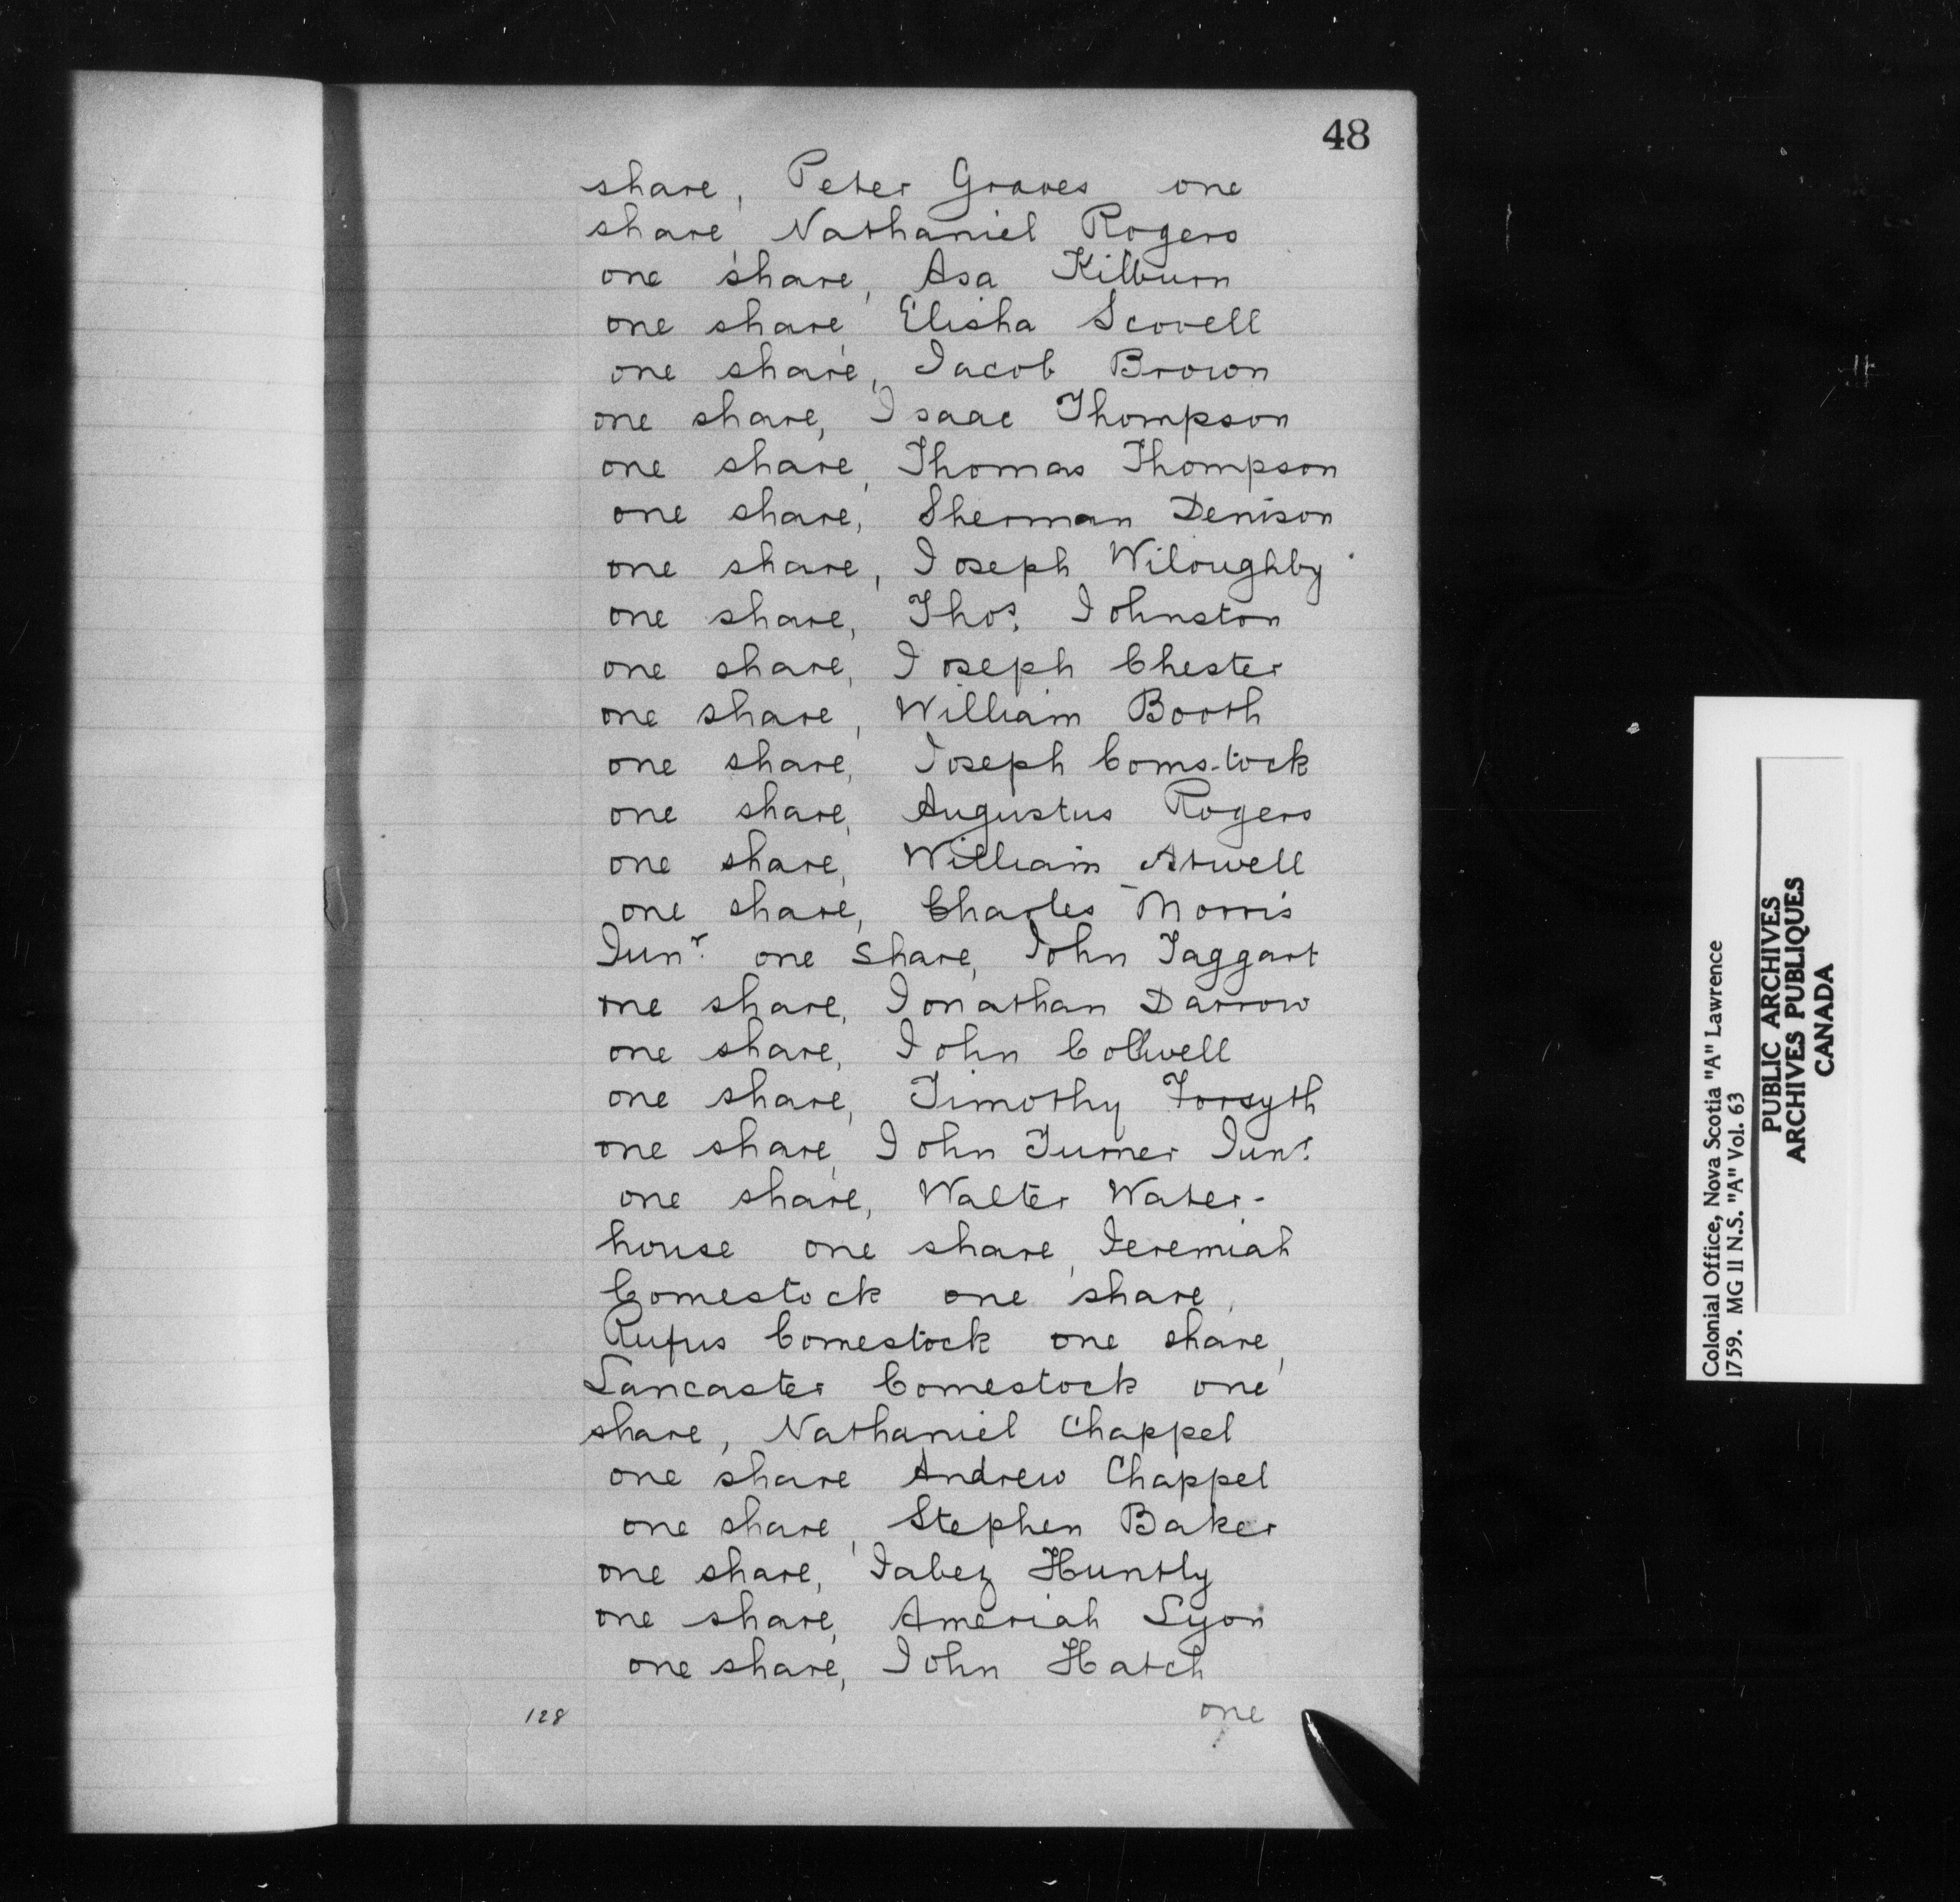 48
share, Peter Graves one
share, Nathaniel Rogers
one share, Asa Kilburn
one share, Elisha Scovell
one share, Jacob Brown
one share, Isaac Thompson
one share, Thomas Thompson
one share, Sherman Denison
one share, Joseph Wiloughby
one share, Thos. Johnston
one share, Joseph Chester
one share, William Booth
one share, Joseph Comstock
one share, Augustus Rogers
one share, William Atwell
one share, Charles Morris
Junr. one share, John Taggart
one share, Jonathan Darrow
one share, John Collwell
one share, Timothy Forsyth
one share, John Turner Junr.
one share, Walter Water-
house one share, Jeremiah
Comestock one share,
Rufus Comestock one share,
Lancaster Comestock one
share, Nathaniel Chappel
one share Andrew Chappel
one share, Stephen Baker
one share, Jabez Huntly
one share, Ameriah Lyon
one share, John Hatch
one
128
Colonial Office, Nova Scotia "A" Lawrence
1759. MG 11 N.S. "A" Vol. 63
PUBLIC ARCHIVES
ARCHIVES PUBLIQUES
CANADA